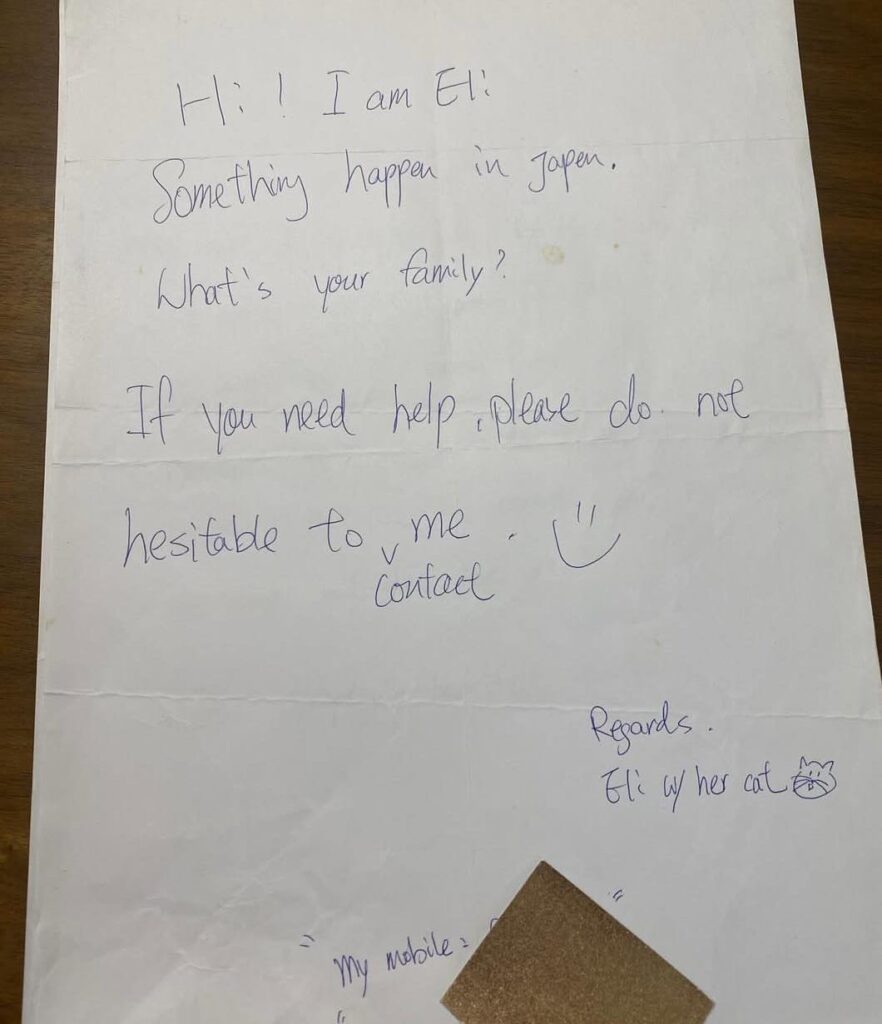 Hi! I am Eli
Something happen in Japen.
What's your family?
If you need help, please do not
hesitable to contact me.
Regards.
Eli w/ her cat
"My mobile: